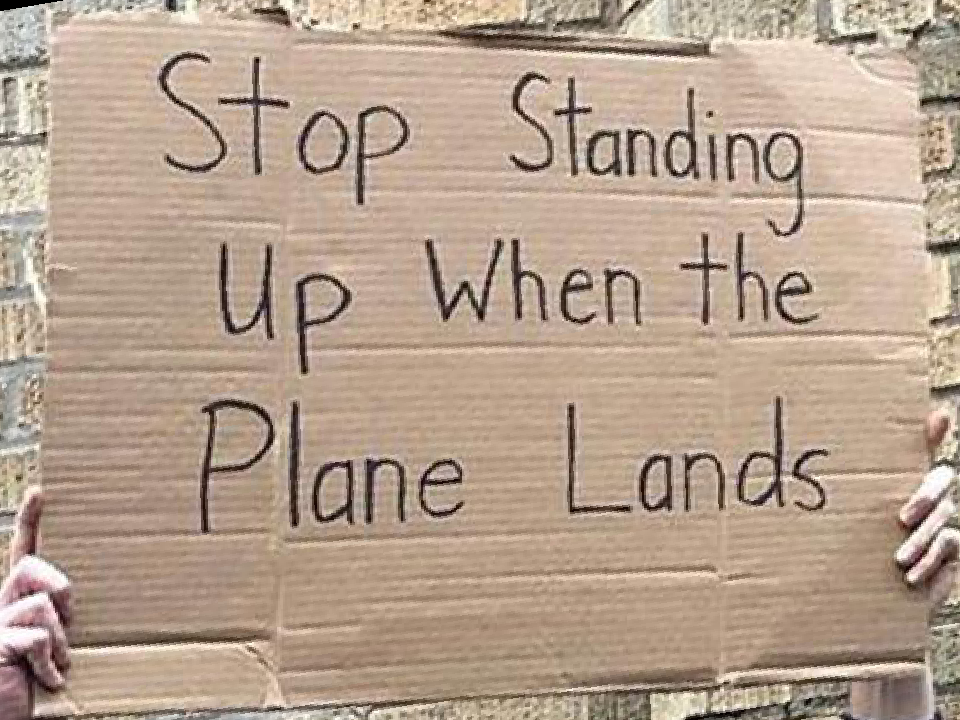 Stop Standing
Up When the
Plane Lands